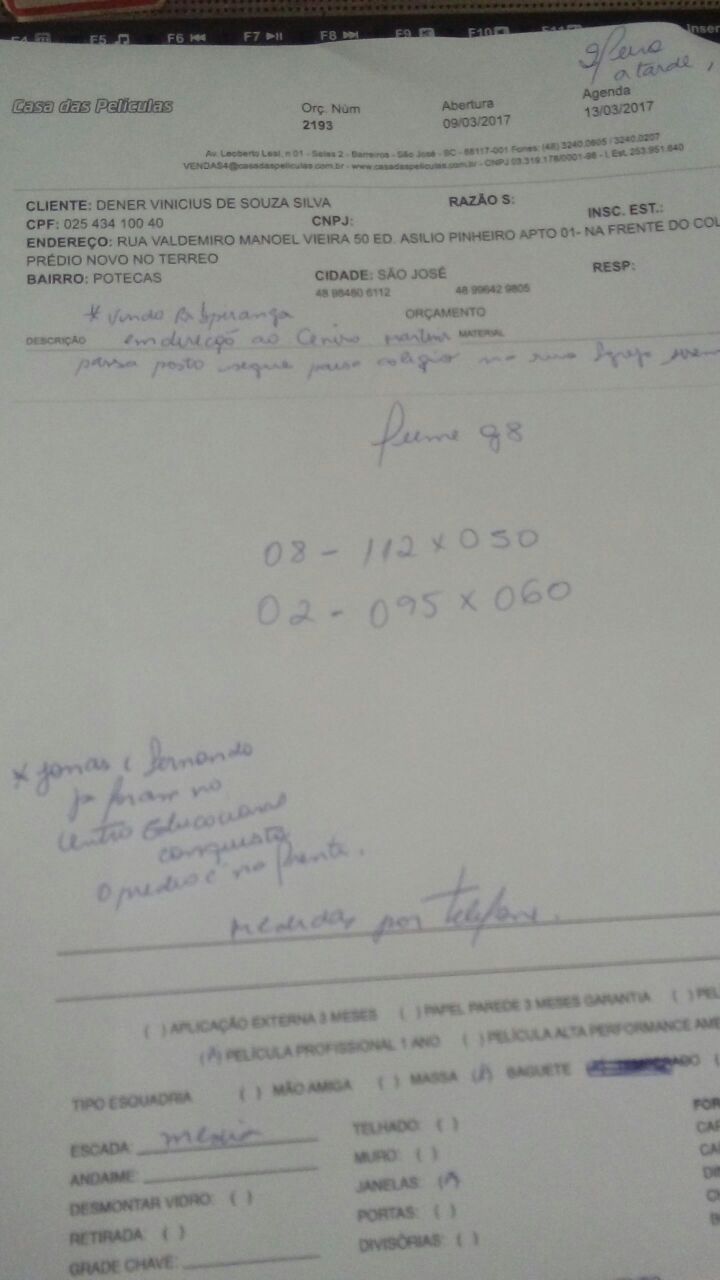 F5 F6 F7 F8 F9 F10 Inser
a tarde,
Casa das Películas
Orç. Núm Abertura Agenda
2193 09/03/2017 13/03/2017
Av. Leoberto Leal, n 01 - Salas 2 - Barreiros - São José - SC - 88117-001 Fones: (48) 3240.0605 / 3240.0207
VENDAS4@casadaspeliculas.com.br - www.casadaspeliculas.com.br - CNPJ 03.319.178/0001-98 - I. Est. 253.951.640
CLIENTE: DENER VINICIUS DE SOUZA SILVA RAZÃO S:
CPF: 025 434 100 40 CNPJ: INSC. EST.:
ENDEREÇO: RUA VALDEMIRO MANOEL VIEIRA 50 ED. ASILIO PINHEIRO APTO 01- NA FRENTE DO COL
PRÉDIO NOVO NO TERREO
BAIRRO: POTECAS CIDADE: SÃO JOSÉ RESP:
48 98480 6112 48 99642 9805
* Vindo ORÇAMENTO
DESCRIÇÃO em direção ao Centro MATERIAL
passa posto segue passa colégio na rua Igreja
fume g8
08 - 112 x 050
02 - 095 x 060
* Jonas e Fernando
ja foram no
Centro Educacional
conquista
O predio é na frente.
medidas por telefone.
( ) APLICAÇÃO EXTERNA 3 MESES ( ) PAPEL PAREDE 3 MESES GARANTIA ( ) PEL
( ) PELÍCULA PROFISSIONAL 1 ANO ( ) PELÍCULA ALTA PERFORMANCE AME
TIPO ESQUADRIA ( ) MÃO AMIGA ( ) MASSA ( ) BAGUETE
ESCADA: TELHADO: ( ) FOR
ANDAIME: MURO: ( )
DESMONTAR VIDRO: ( ) JANELAS: ( )
RETIRADA: ( ) PORTAS: ( )
GRADE CHAVE: DIVISÓRIAS: ( )